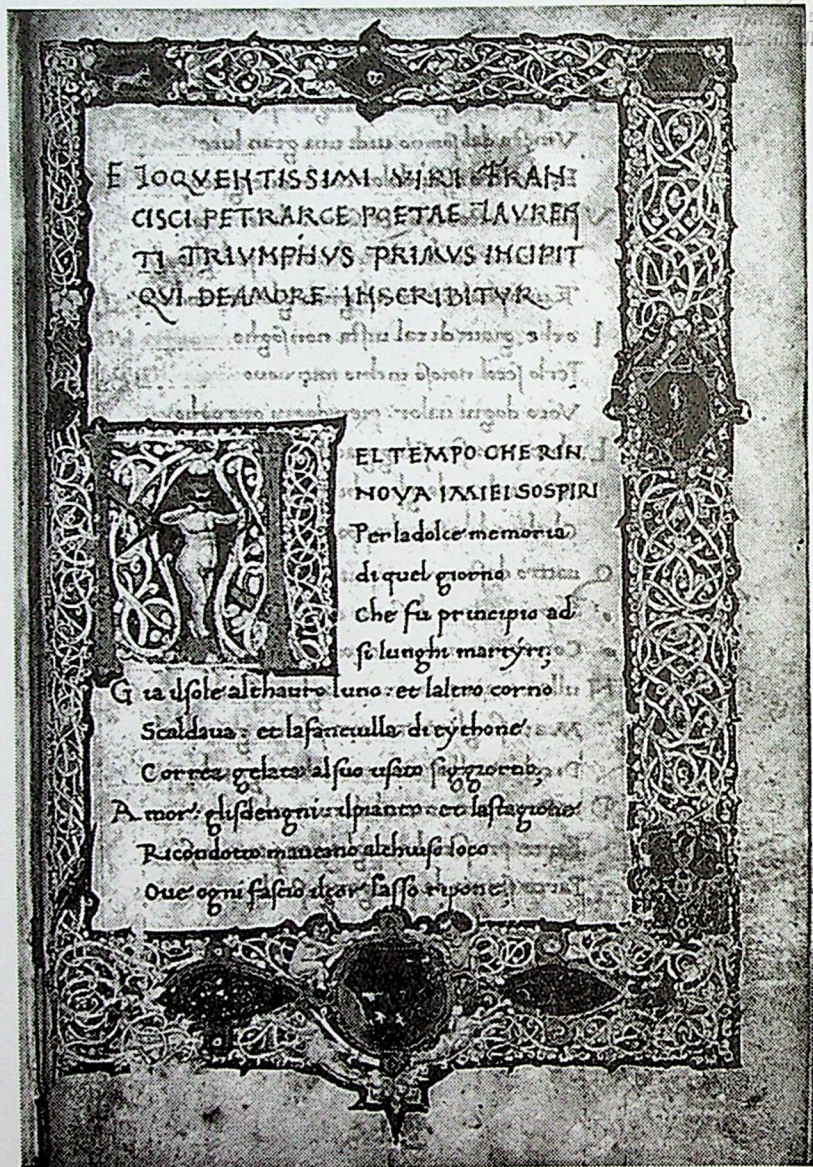 ELOQVENTISSIMI VIRI FRAN
CISCI PETRARCE POETAE LAVREN
TI TRIVMPHVS PRIMVS INCIPIT
QVI DE AMORE INSCRIBITVR
NEL TEMPO CHE RIN
NOVA I MIEI SOSPIRI
Per la dolce memoria
di quel giorno
Che fu principio ad
si lunghi martyri;
Gia il sole al thauro luno: et laltro corno
Scaldaua: et la fanciulla di tythone
Correa gelata al suo usato soggiorno;
Amor: gli sdengni: il pianto: et la stagione
Ricondotto maueano al chiuso loco
Oue ogni fascio il cor lasso ripone;